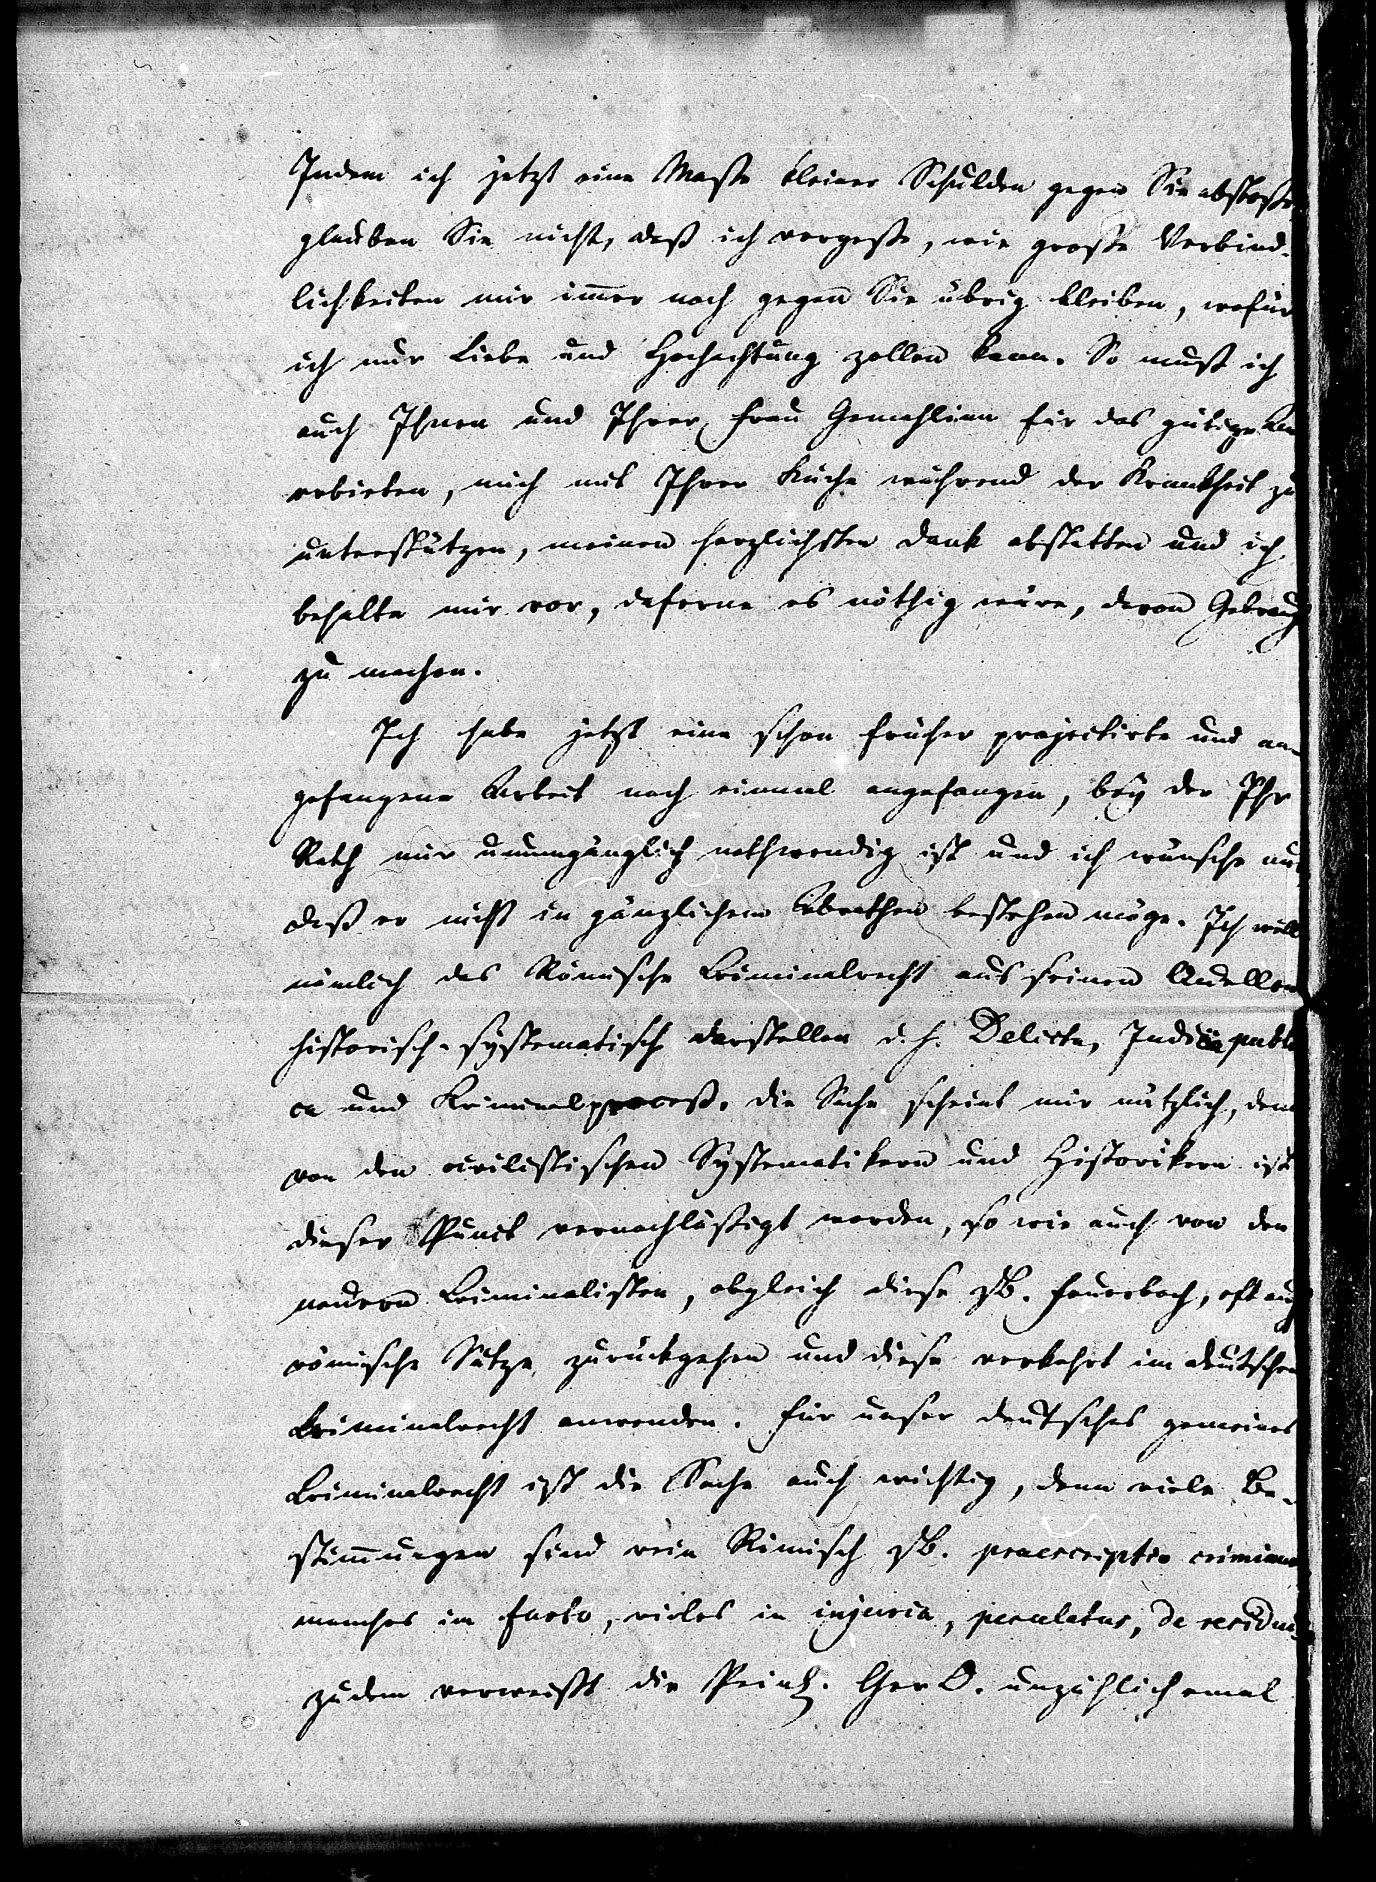 Indem ich jetzt eine Masse kleiner Schulden gegen Sie abstoße,
glauben Sie nicht, daß ich vergesse, wie große Verbind-
lichkeiten mir imer noch gegen Sie übrig bleiben, wofür
ich nur Liebe und Hochachtung zollen kann. So muß ich
auch Ihnen und Ihrer Frau Gemahlinn für das gütige An
erbieten, mich mit Ihrer Küche während der Krankheit zu
unterstützen, meinen herzlichsten Dank abstatten und ich
behalte mir vor, daferne es nöthig wäre, davon Gebrauch
zu machen.
Ich habe jetzt eine schon früher projectirte und an-
gefangene Arbeit noch einmal angefangen, bey der Ihr
Rath mir unumgänglich nothwendig ist und ich wünsche nur,
daß er nicht in gänzlichem Abrathen bestehen möge. Ich will
nämlich das Römische Criminalrecht aus seinen Quellen
historisch-systematisch darstellen d. h. Delicte, Judicia publi
ca und Kriminalproceß. Die Sache scheint mir nützlich, denn
von den civilistischen Systematikern und Historikern ist
dieser Punct vernachläßigt worden, so wie auch von den
neuern Criminalisten, obgleich diese zB. Feuerbach, oft auf
römische Sätze zurückgehen und diese verkehrt im deutschen
Kriminalrecht anwenden. Für unser deutsches gemeines
Criminalrecht ist die Sache auch wichtig, denn viele Be-
stimungen sind rein Römisch zB. praescriptio criminum
manches im furto, vieles in injuria, peculatus, de residuis
zudem verweißt die Peinl. Ger O. unzählichemal